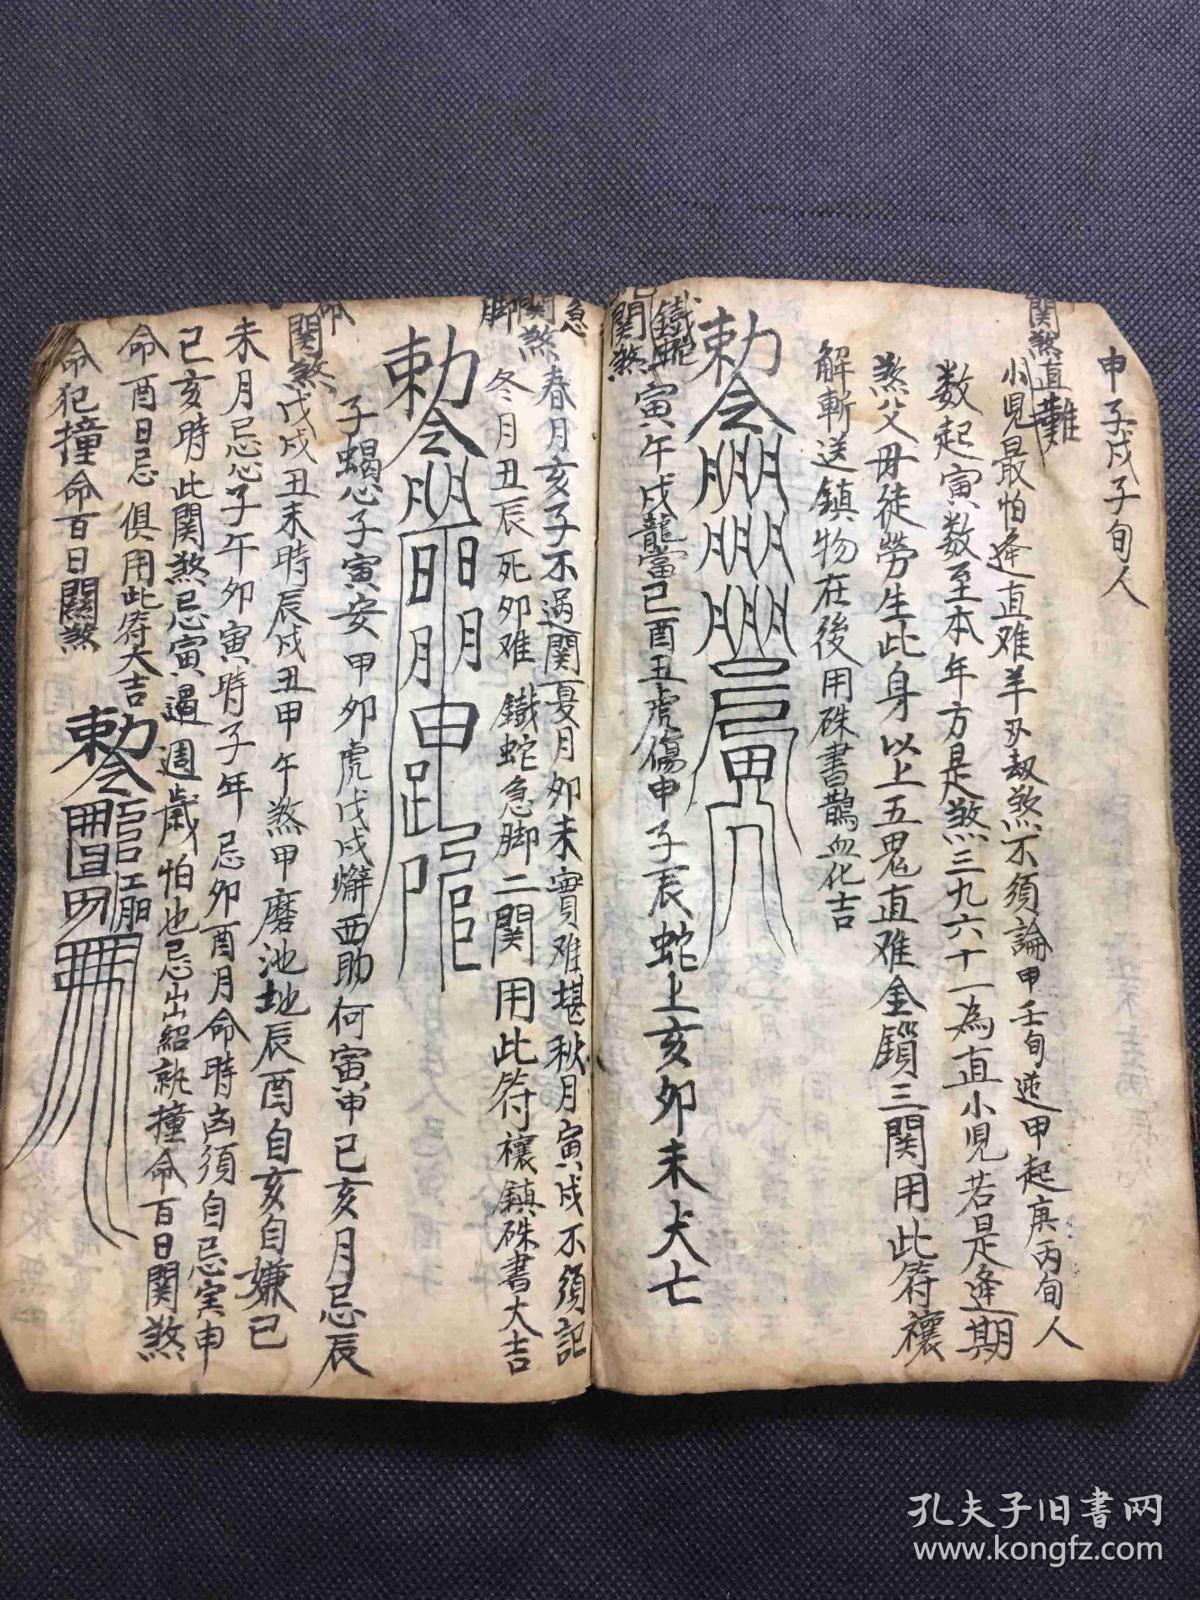 申子戌子旬人
関煞直難
小児最怕逄直难羊刃劫煞不須論甲壬旬逆甲起庚丙旬人
数起寅数至本年方是煞三九六十一為直小児若是逄期
煞父母徒勞生此身以上五鬼直难金鎖三関用此符禳
解斬送鎮物在後用硃書鵲血化吉
勅令
鐵蛇
関煞
寅午戌龍當己酉丑虎傷申子辰蛇上亥卯未犬亡
急
脚関煞
春月亥子不過関夏月卯未實难堪秋月寅戌不須記
冬月丑辰死卯难 鐵蛇急脚二関用此符禳鎮硃書大吉
勅令
子蝎忌子寅安甲卯虎戊戌懈西助何寅申巳亥月忌辰
関煞
戊戌丑未時辰戌丑甲午煞甲磨池地辰酉自亥自嫌己
未月忌忌子午卯寅時子年忌卯酉月命時凶須自忌寅申
己亥時此関煞忌寅過週歲怕也忌出紹執撞命百日関煞
命酉日忌俱用此符大吉
勅令
命犯撞命百日關煞
孔夫子旧书网
www.kongfz.com